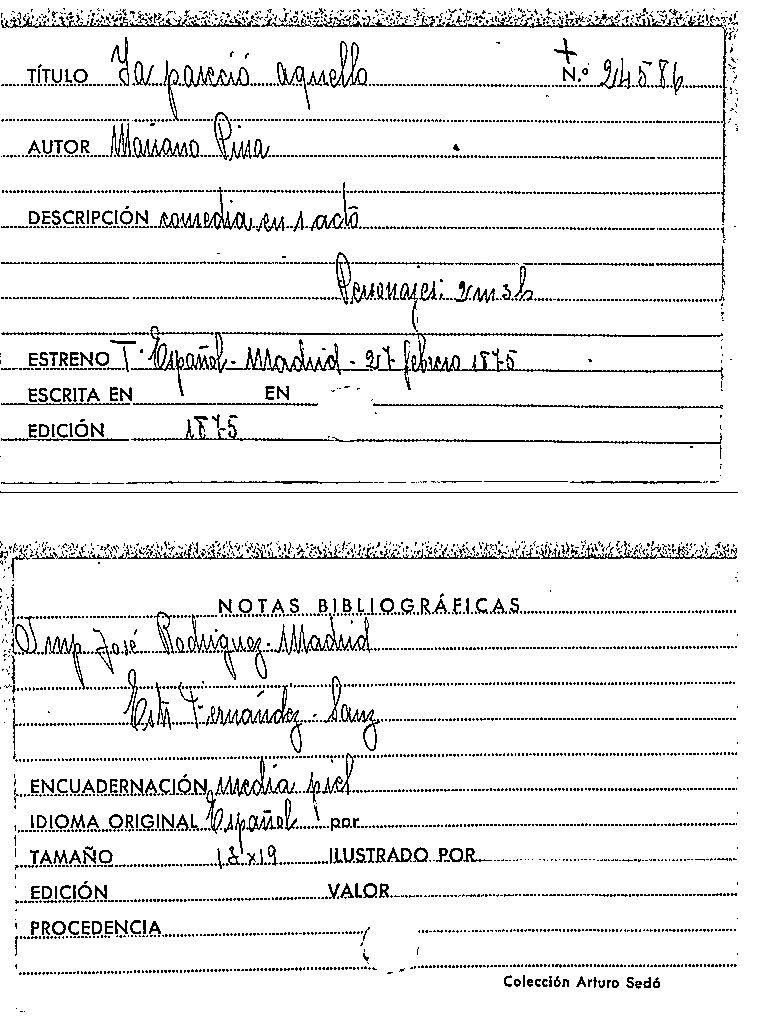 TÍTULO Ya pareció aquello + N.º 24586
AUTOR Mariano Pina
DESCRIPCIÓN comedia en 1 acto
Personajes: 2m 3h
ESTRENO T. Español - Madrid - 27 febrero 1875
ESCRITA EN EN
EDICIÓN 1875
NOTAS BIBLIOGRÁFICAS
Imp José Rodriguez - Madrid
Fernández - Sanz
ENCUADERNACIÓN media piel
IDIOMA ORIGINAL Español por
TAMAÑO ILUSTRADO POR
EDICIÓN VALOR
PROCEDENCIA
Colección Arturo Sedó